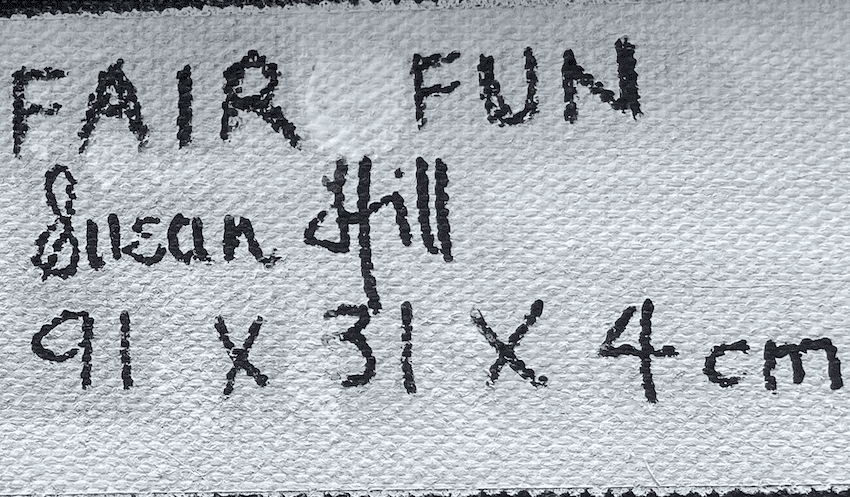 FAIR FUN
Susan Hill
91 X 31 X 4 cm